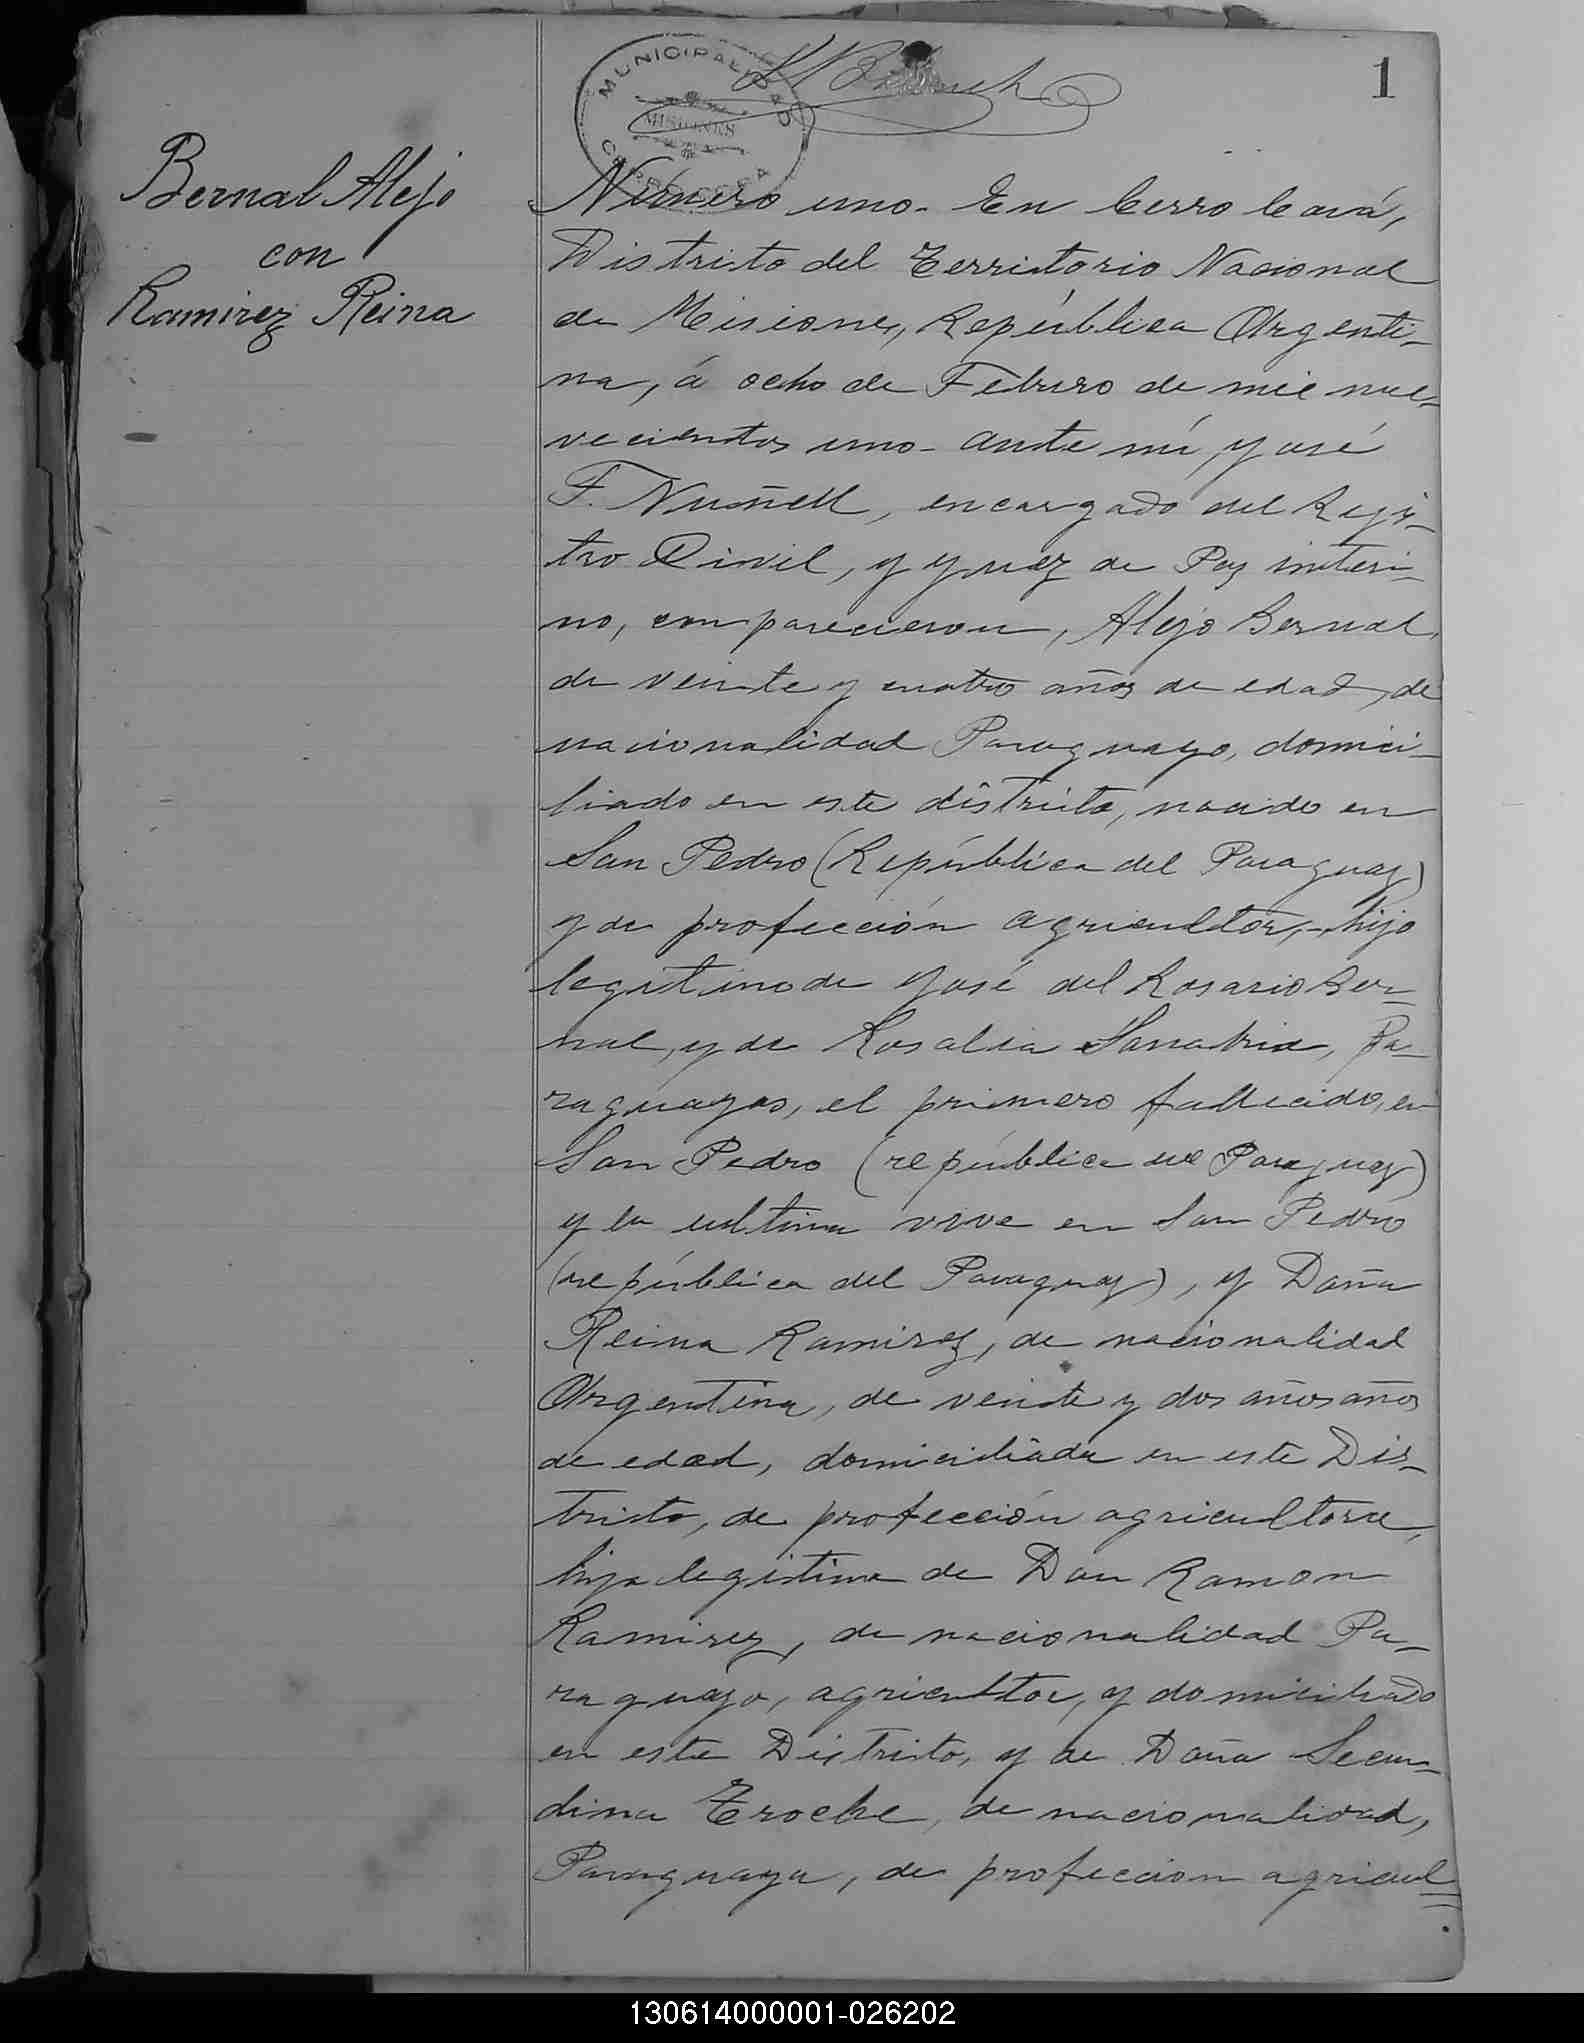 1
MUNICIPALIDAD
MISIONES
Bernal Alejo
con
Ramirez Reina
Número uno. En Cerro Corá,
Distrito del Territorio Nacional
de Misiones, República Argenti-
na, á ocho de Febrero de mil nue-
vecientos uno. Ante mí, José
F. Nuñell, encargado del Regis-
tro Civil, y Juez de Paz interi-
no, comparecieron, Alejo Bernal,
de veinte y cuatro años de edad, de
nacionalidad Paraguayo, domici-
liado en este distrito, nacido en
San Pedro (República del Paraguay)
y de profección agricultor, hijo
legitimo de José del Rosario Ber-
nal, y de Rosalia Sanabria, Pa-
raguayos, el primero fallecido, en
San Pedro (república del Paraguay)
y la ultima vive en San Pedro
(república del Paraguay), y Doña
Reina Ramirez, de nacionalidad
Argentina, de veinte y dos años años
de edad, domiciliada en este Dis-
trito, de profección agricultora,
hija legitima de Don Ramon
Ramirez, de nacionalidad Pa-
raguayo, agricultor, y domiciliado
en este Distrito, y de Doña Secun-
dina Troche, de nacionalidad,
Paraguaya, de profeccion agricul=
130614000001-026202